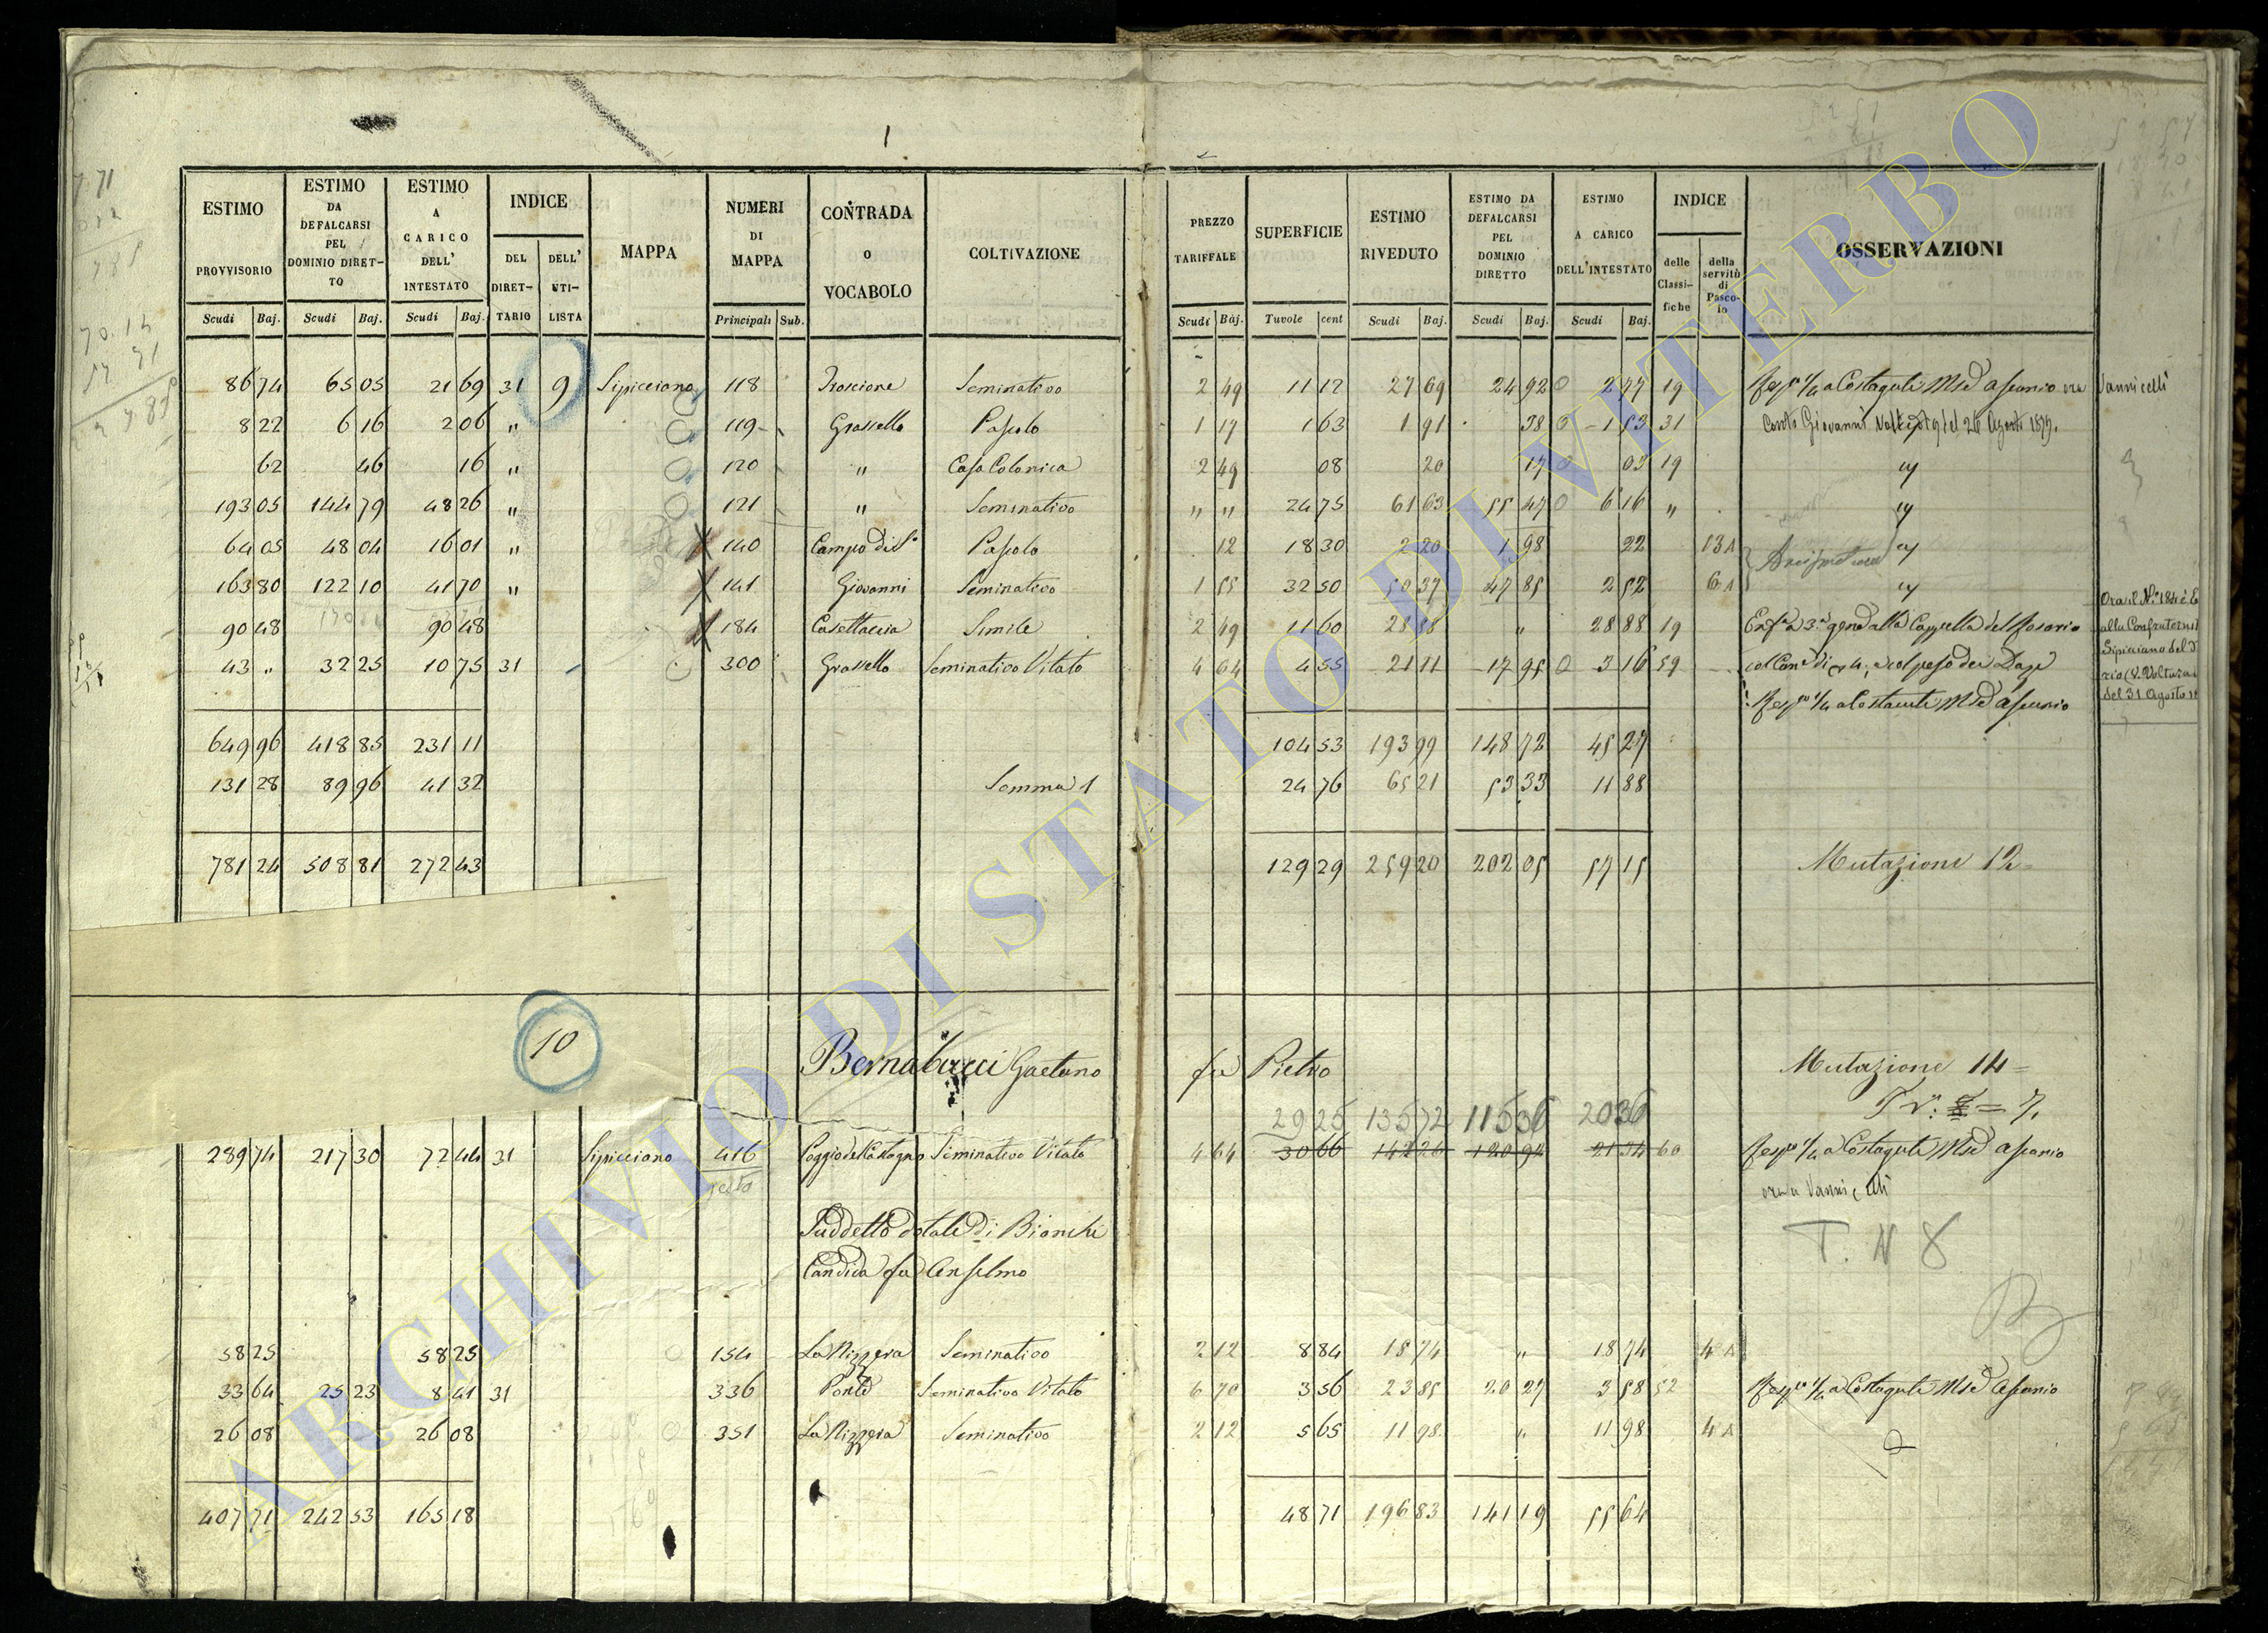 1
ESTIMO PROVVISORIO Scudi Baj.
ESTIMO DA DEFALCARSI PEL DOMINIO DIRET-TO Scudi Baj.
ESTIMO A CARICO DELL' INTESTATO Scudi Baj.
INDICE DEL DIRET-TARIO DELL' UTI-LISTA
MAPPA
NUMERI DI MAPPA Principali Sub.
CONTRADA o VOCABOLO
COLTIVAZIONE
PREZZO TARIFFALE Scudi Baj.
SUPERFICIE Tavole cent
ESTIMO RIVEDUTO Scudi Baj.
ESTIMO DA DEFALCARSI PEL DOMINIO DIRETTO Scudi Baj.
ESTIMO A CARICO DELL'INTESTATO Scudi Baj.
INDICE delle Classi-fiche della servitù di Pasco-lo
OSSERVAZIONI
86 74 65 05 21 69 31 9 Sipicciano 118 Troscione Seminativo 2 49 11 12 27 69 24 92 0 2 77 19 Resp.a 1/4 a Costaguti Mse Ascanio ora Vannicelli
8 22 6 16 2 06 " 119 Grassello Pascolo 1 17 1 63 1 91 38 0 1 53 31 Conte Giovanni del 26 Agosto
62 46 16 " 120 " Casa Colonica 2 49 08 20 17 0 03 19
193 05 144 79 48 26 " 121 " Seminativo " " 24 75 61 63 55 47 0 6 16 "
64 05 48 04 16 01 " 140 Campo di S. Pascolo 12 18 30 2 20 1 98 22 13 A
163 80 122 10 41 70 " 141 Giovanni Seminativo 1 55 32 50 50 37 47 85 2 52 6 A
90 48 90 48 184 Casettaccia Simile 2 49 11 60 28 88 " 28 88 19 Enf.a 3.a gene alla Cappella del Rosario
43 " 32 25 10 75 31 300 Grassello Seminativo Vitato 4 64 4 55 21 11 17 95 0 3 16 59 col peso dei Dazi
Resp.a 1/4 a Costaguti Mse Ascanio
Ora il N.° 184 è
alla Confraternit
Sipicciano del
del 31 Agosto
649 96 418 85 231 11 104 53 193 99 148 72 45 27
131 28 89 96 41 32 Somma 1 24 76 65 21 53 33 11 88
781 24 508 81 272 43 129 29 259 20 202 05 57 15 Mutazione 12
10 Bernabucci Gaetano fu Pietro Mutazione 14
T = 7.
29 25 135 72 115 36 20 36
289 74 217 30 72 44 31 Sipicciano 416 Poggio del Castagno Seminativo Vitato 4 64 30 66 142 26 120 92 21 34 60 Resp.a 1/4 a Costaguti Mse Ascanio
ora a Vannicelli
Suddetto dotale di Bianchi
Candida fu Anselmo
T. N 8
58 25 58 25 154 La Nizzera Seminativo 2 12 8 84 18 74 " 18 74 4 A
33 64 25 23 8 41 31 336 Ponte Seminativo Vitato 6 70 3 56 23 85 20 27 3 58 52 Resp.a 1/4 a Costaguti Mse Ascanio
26 08 26 08 351 La Nizzera Seminativo 2 12 5 65 11 98 " 11 98 4 A
407 71 242 53 165 18 48 71 196 83 141 19 55 64
ARCHIVIO DI STATO DI VITERBO